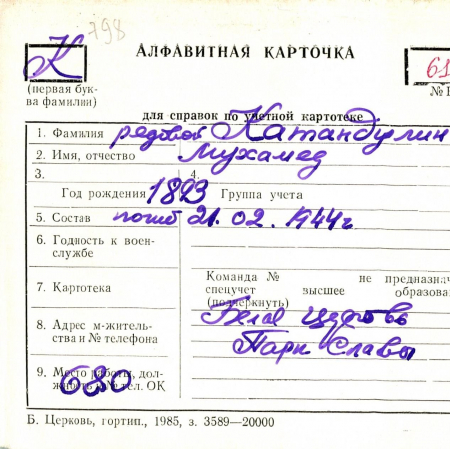 798
К
АЛФАВИТНАЯ КАРТОЧКА
61
(первая бук-
ва фамилии)
№ В
для справок по учетной картотеке
1. Фамилия рядовой Катандулин
2. Имя, отчество Мухамед
3. 4.
Год рождения 1893 Группа учета
5. Состав погиб 21.02.1944г.
6. Годность к воен-
службе
7. Картотека
Команда № не предназнач
спецучет высшее образова
(подчеркнуть)
Белая Церковь
8. Адрес м-житель-
ства и № телефона
Парк Славы
9. Место работы, дол-
жность и № тел. ОК
680
Б. Церковь, гортип., 1985, з. 3589—20000